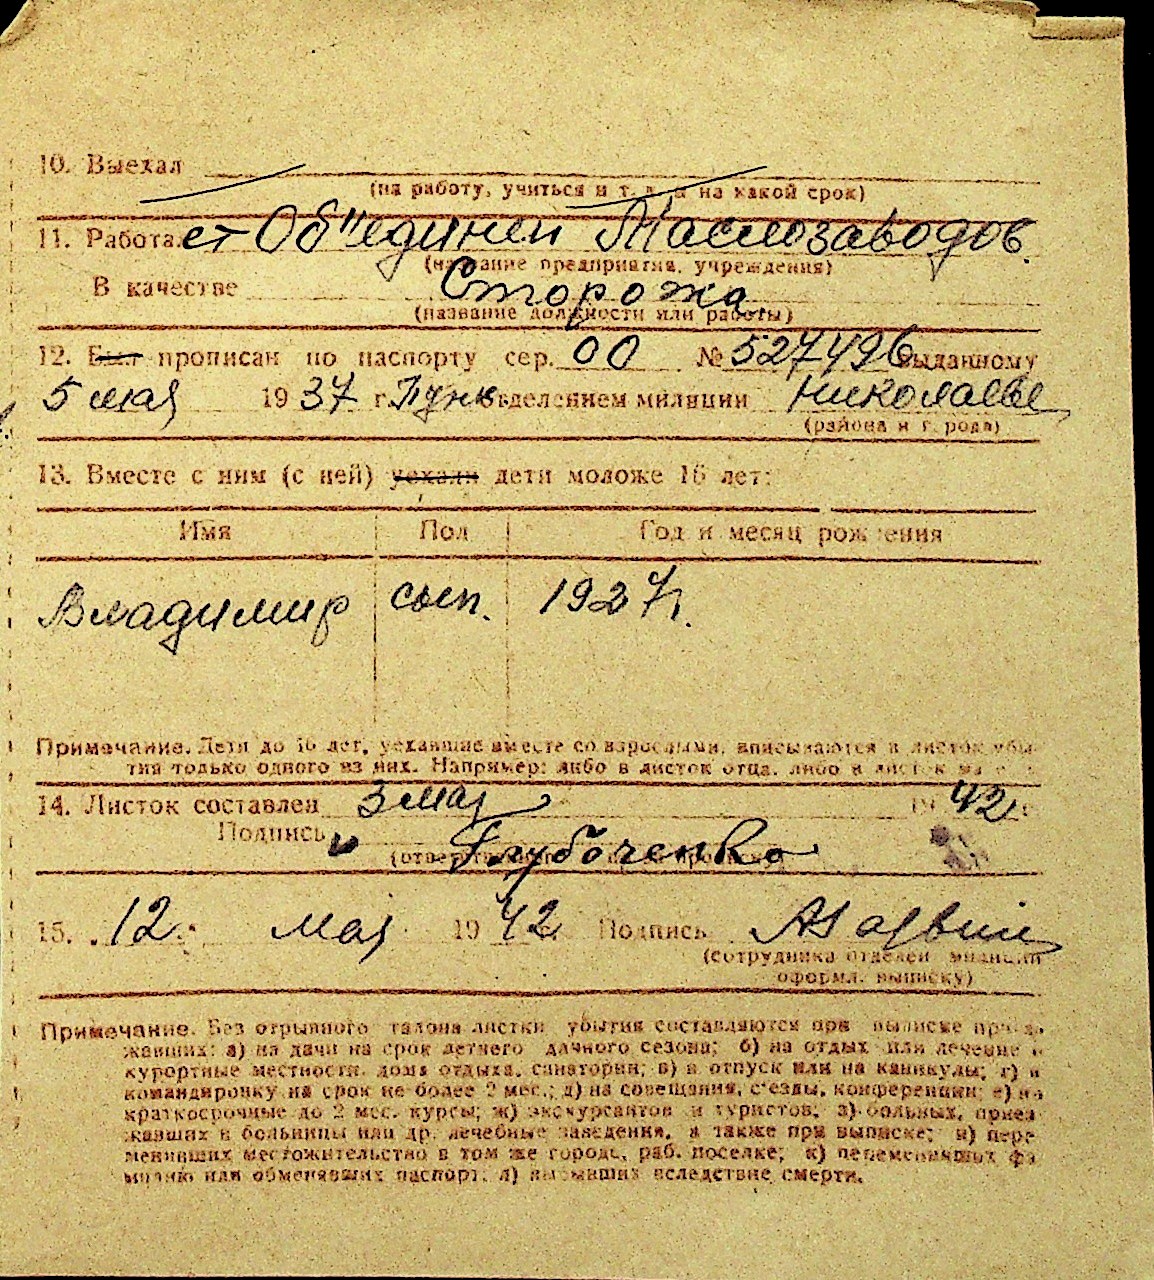 10. Выехал
(на работу, учиться и т. д. и на какой срок)
11. Работает Об"единен Маслозаводов.
(название предприятия, учреждения)
В качестве Сторожа
(название должности или работы)
12. Был прописан по паспорту сер. 00 № 527496 выданному
5 мая 1937 г. Пунк отделением милиции Николаевск
(района и города)
13. Вместе с ним (с ней) уехали дети моложе 16 лет:
Имя Пол Год и месяц рождения
Владимир сын. 1927г.
Примечание. Дети до 16 лет, уехавшие вместе со взрослыми, вписываются в листок убы-
тия только одного из них. Например: либо в листок отца, либо в листок
14. Листок составлен 3 мая 1942 г.
Подпись Глубоченко
15. 12 мая 1942 Подпись
(сотрудника отделен милиции
оформл. выписку)
Примечание. Без отрывного талона листки убытия составляются при выписке проез-
жавших: а) на дачи на срок летнего дачного сезона; б) на отдых или лечение в
курортные местности, дома отдыха, санатории; в) в отпуск или на каникулы; г) в
командировку на срок не более 2 мес.; д) на совещания, с'езды, конференции; е) на
краткосрочные до 2 мес. курсы; ж) экскурсантов и туристов; з) больных, приез-
жавших в больницы или др. лечебные заведения, а также при выписке; и) пере-
менивших местожительство в том же городе, раб. поселке; к) переменивших фа-
милию или обменявших паспорт; л) выбывших вследствие смерти.